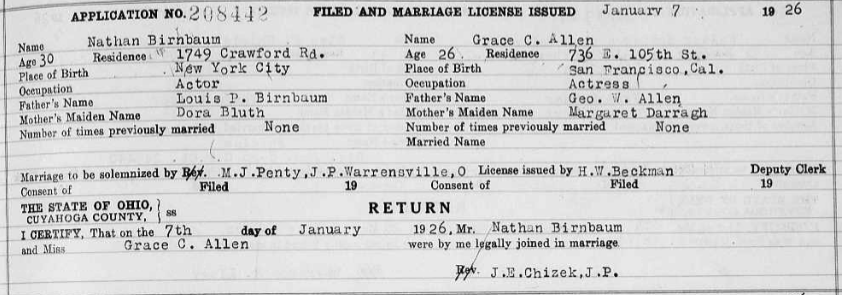 APPLICATION NO. 208442 FILED AND MARRIAGE LICENSE ISSUED January 7 1926
Name Nathan Birnbaum Name Grace C. Allen
Age 30 Residence 1749 Crawford Rd. Age 26 Residence 736 E. 105th St.
Place of Birth New York City Place of Birth San Francisco, Cal.
Occupation Actor Occupation Actress
Father's Name Louis P. Birnbaum Father's Name Geo. W. Allen
Mother's Maiden Name Dora Bluth Mother's Maiden Name Margaret Darragh
Number of times previously married None Number of times previously married None
Married Name
Marriage to be solemnized by Rev. M.J.Penty,J.P.Warrensville,O License issued by H.W.Beckman Deputy Clerk
Consent of Filed 19 Consent of Filed 19
THE STATE OF OHIO, CUYAHOGA COUNTY, } ss RETURN
I CERTIFY, That on the 7th day of January 1926, Mr. Nathan Birnbaum
and Miss Grace C. Allen were by me legally joined in marriage.
Rev. J.E.Chizek,J.P.